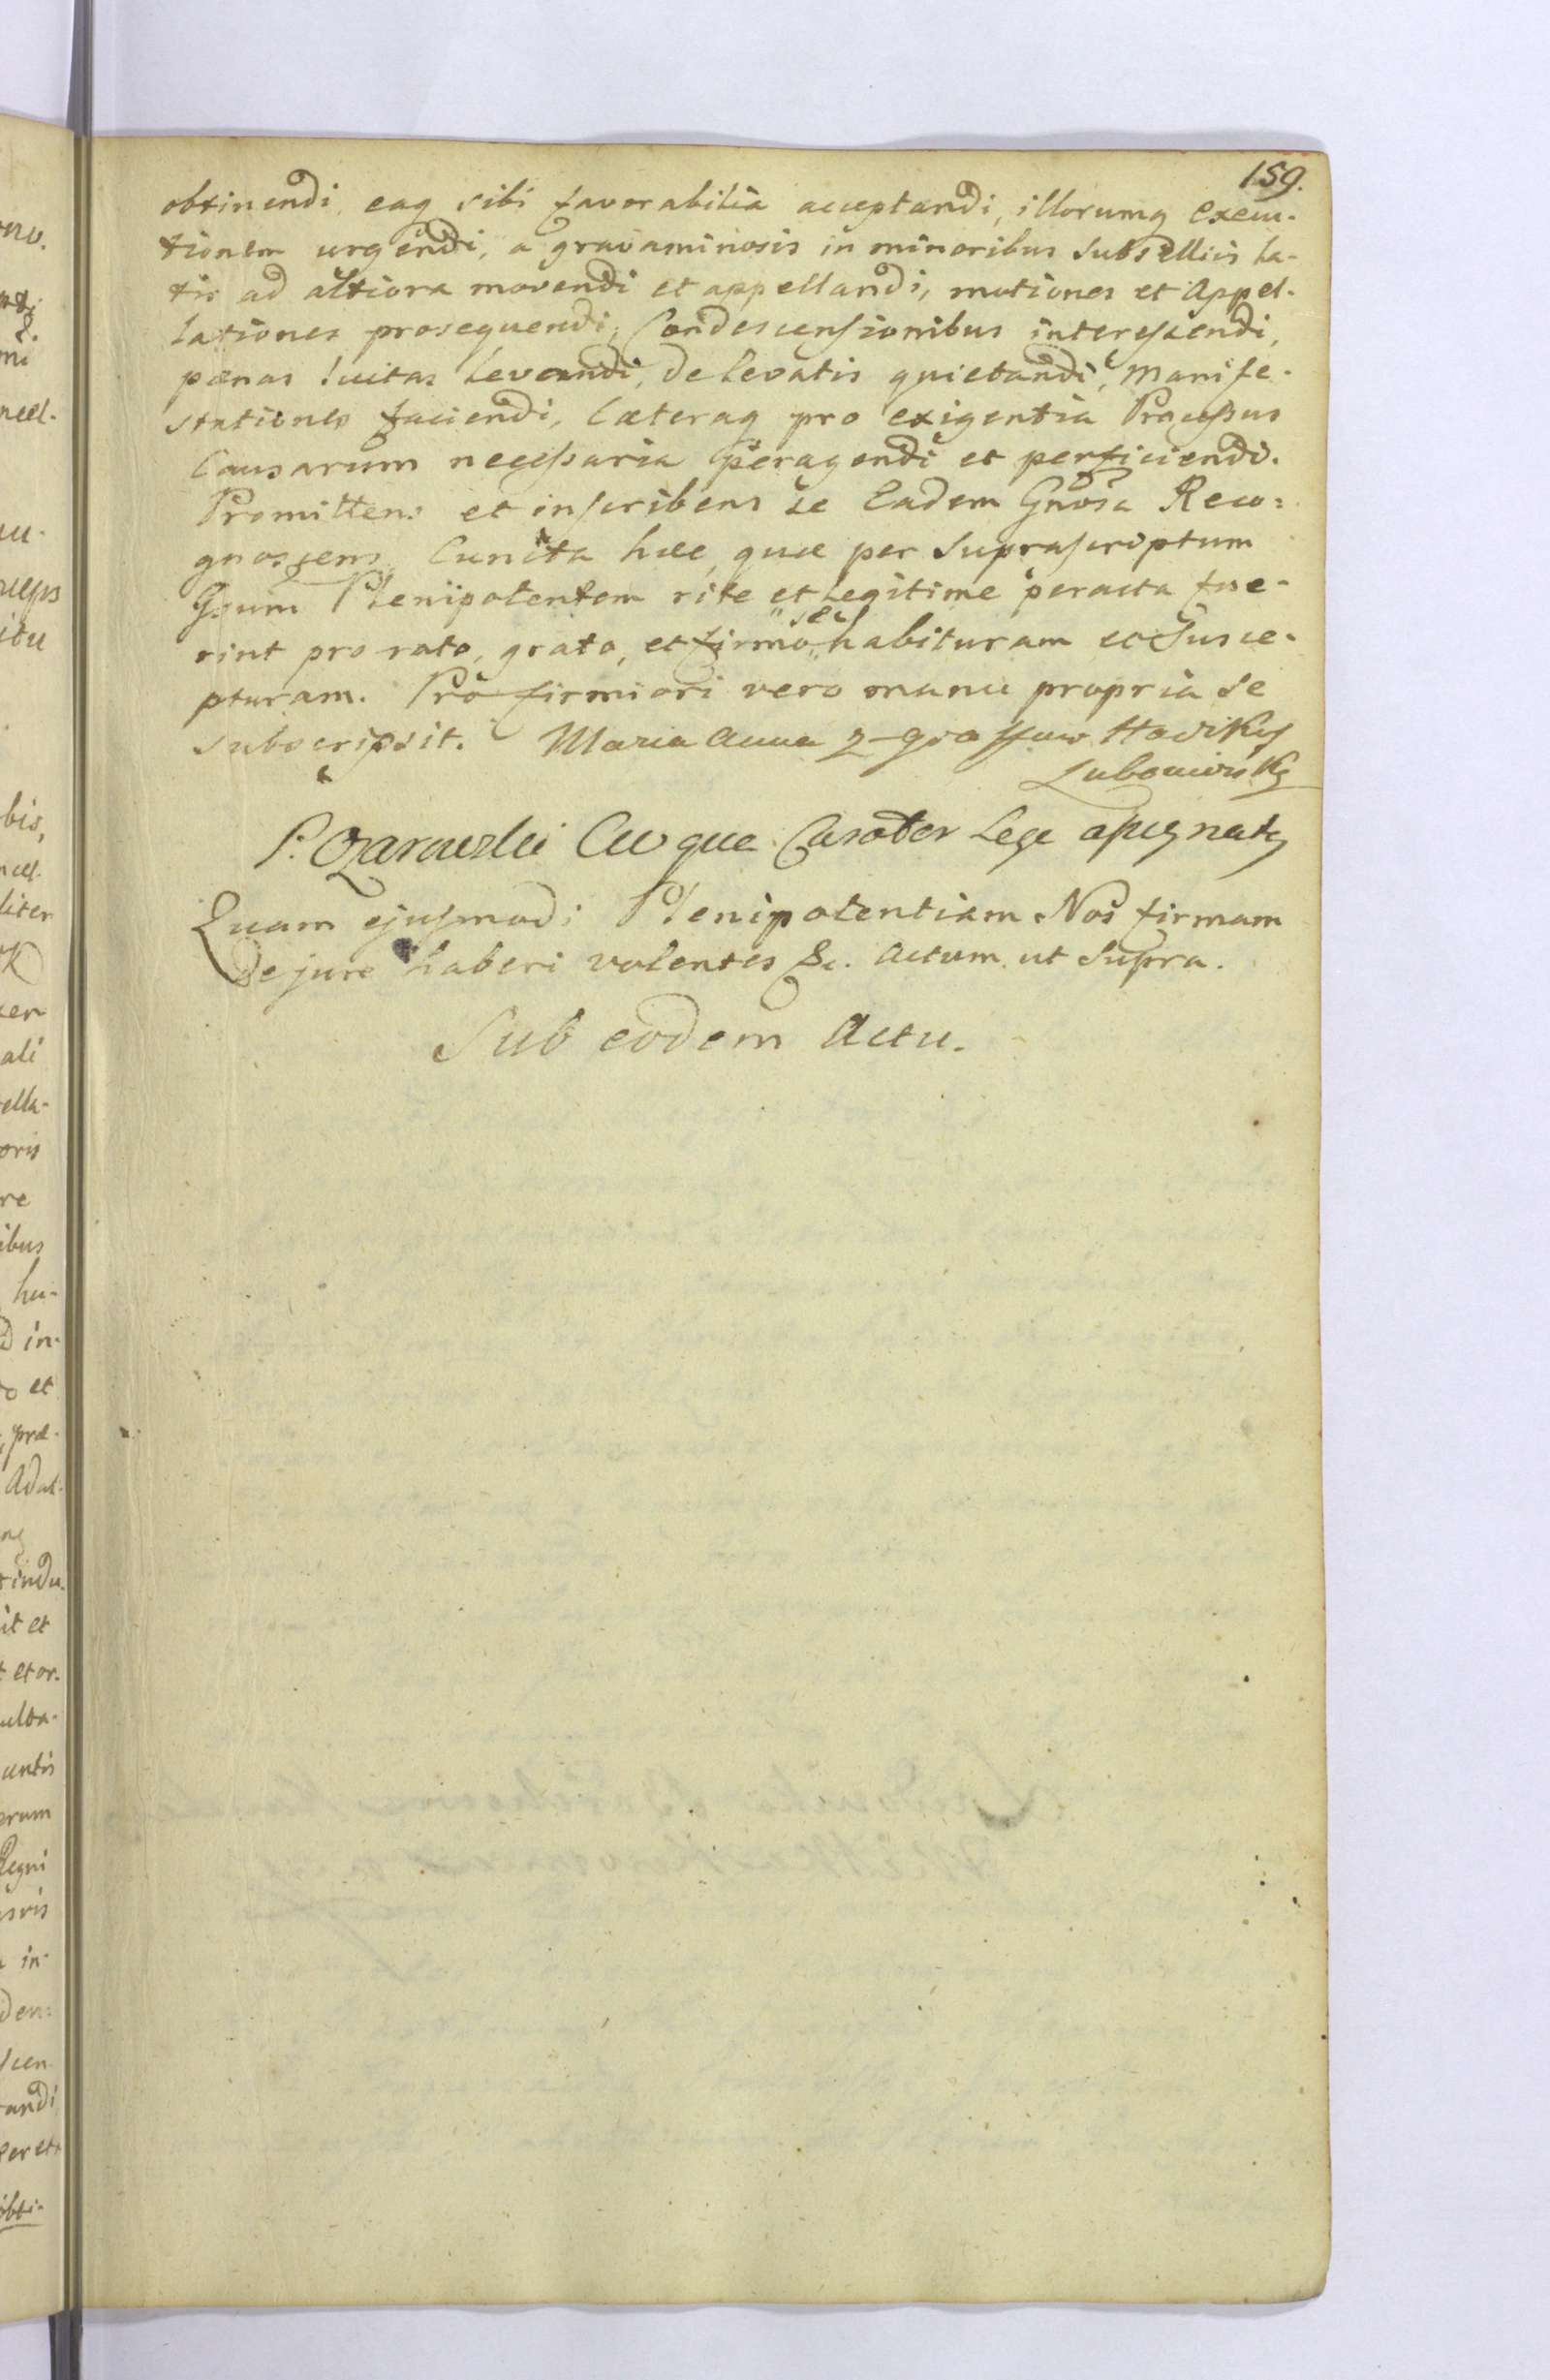 159.
obtinendi, eaq sibi favorabilia acceptandi, illorumq exem-
tionem urgendi, a gravaminosis in minoribus Subselliis la-
tis ad altiora movendi et appellandi, motiones et Appel-
lationes prosequendi, Condescensionibus interessendi,
pænas luitas levandi, de levatis quietandi, Manife-
stationes faciendi, Cæteraq pro exigentia Processus
Causarum necessaria peragendi et perficiendi.
Promittens et inscribens se Eadem Gnosa Reco-
gnoscens, Cuncta hæc, quæ per Suprascriptum
Gsum Plenipotentem rite et Legitime peracta fue-
rint pro rato, grato, et firmo se habituram et Susce-
pturam. Pro firmiori vero manu propria se
subscripsit. Maria Anna
P. Ozarowski
Quam ejusmodi Plenipotentiam Nos firmam
De jure haberi volentes &c. Actum ut Supra.
Sub eodem Actu.